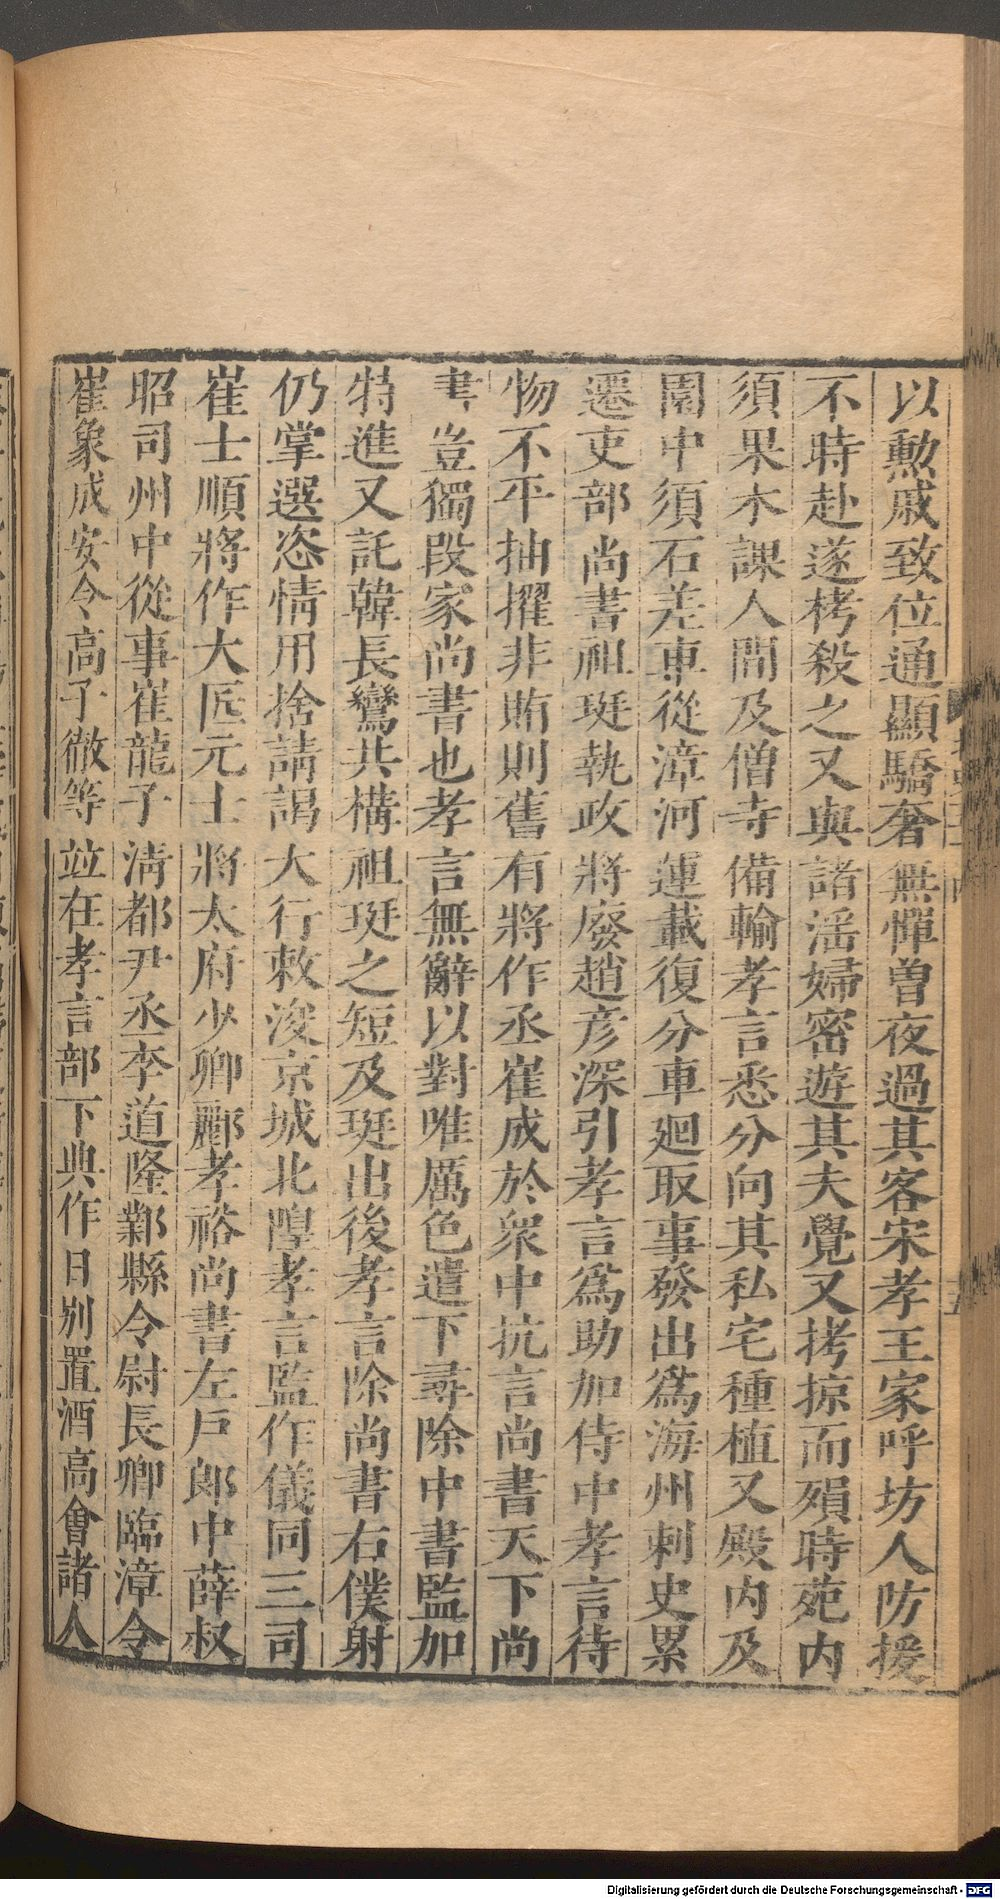 以勲戚致位通顯驕奢無憚曽夜過其客宋孝王家呼坊人防援
不時赴遂栲殺之又與諸淫婦密遊其夫覺又拷掠而殞時苑内
須果木課人間及僧寺備輸孝言悉分向其私宅種植又殿内及
園中須石差車從漳河運載復分車廻取事發出爲海州刺史累
遷吏部尚書祖珽執政將廢趙彦深引孝言爲助加侍中孝言待
物不平抽擢非賄則舊有將作丞崔成於衆中抗言尚書天下尚
書豈獨段家尚書也孝言無辭以對唯厲色遣下尋除中書監加
特進又託韓長鸞共構祖珽之短及珽出後孝言除尚書右僕射
仍掌選恣情用捨請謁大行敕浚京城北隍孝言監作儀同三司
崔士順將作大匠元士將太府少卿酈孝裕尚書左戸郎中薛叔
昭司州中從事崔龍子清都尹丞李道隆鄴縣令尉長卿臨漳令
崔象成安令高子徹等竝在孝言部下典作日别置酒高會諸人
Digitalisierung gefördert durch die Deutsche Forschungsgemeinschaft - DFG